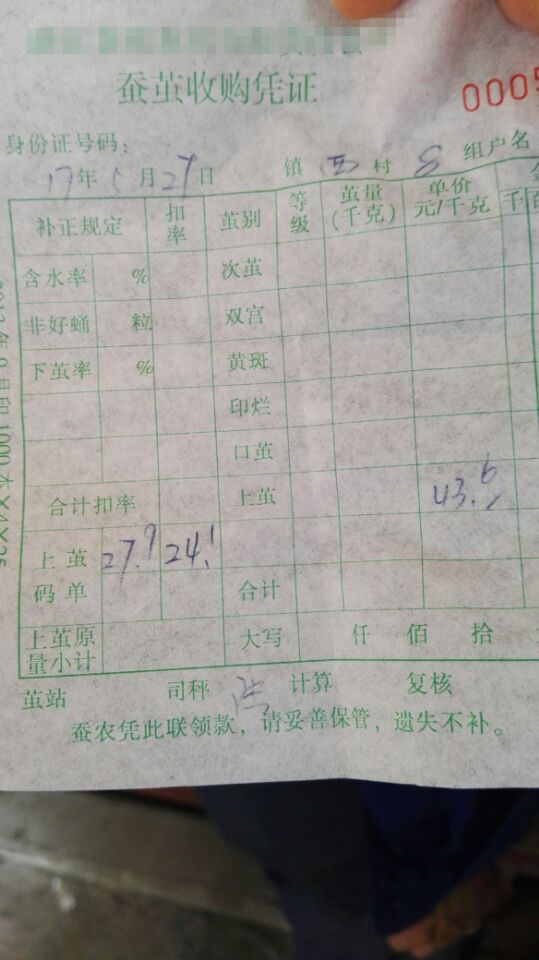 蚕茧收购凭证
0005
身份证号码:
17年 月29日 镇 村 组户名
补正规定 扣率 茧别 等级 茧量(千克) 单价元/千克 千
含水率 % 次茧
非好蛹 粒 双宫
下茧率 % 黄斑
印烂
口茧
合计扣率 上茧 43.6
上茧码单 27.9 24.1 合计
上茧原量小计 大写 仟 佰 拾
茧站 司秤 计算 复核
蚕农凭此联领款,请妥善保管,遗失不补。